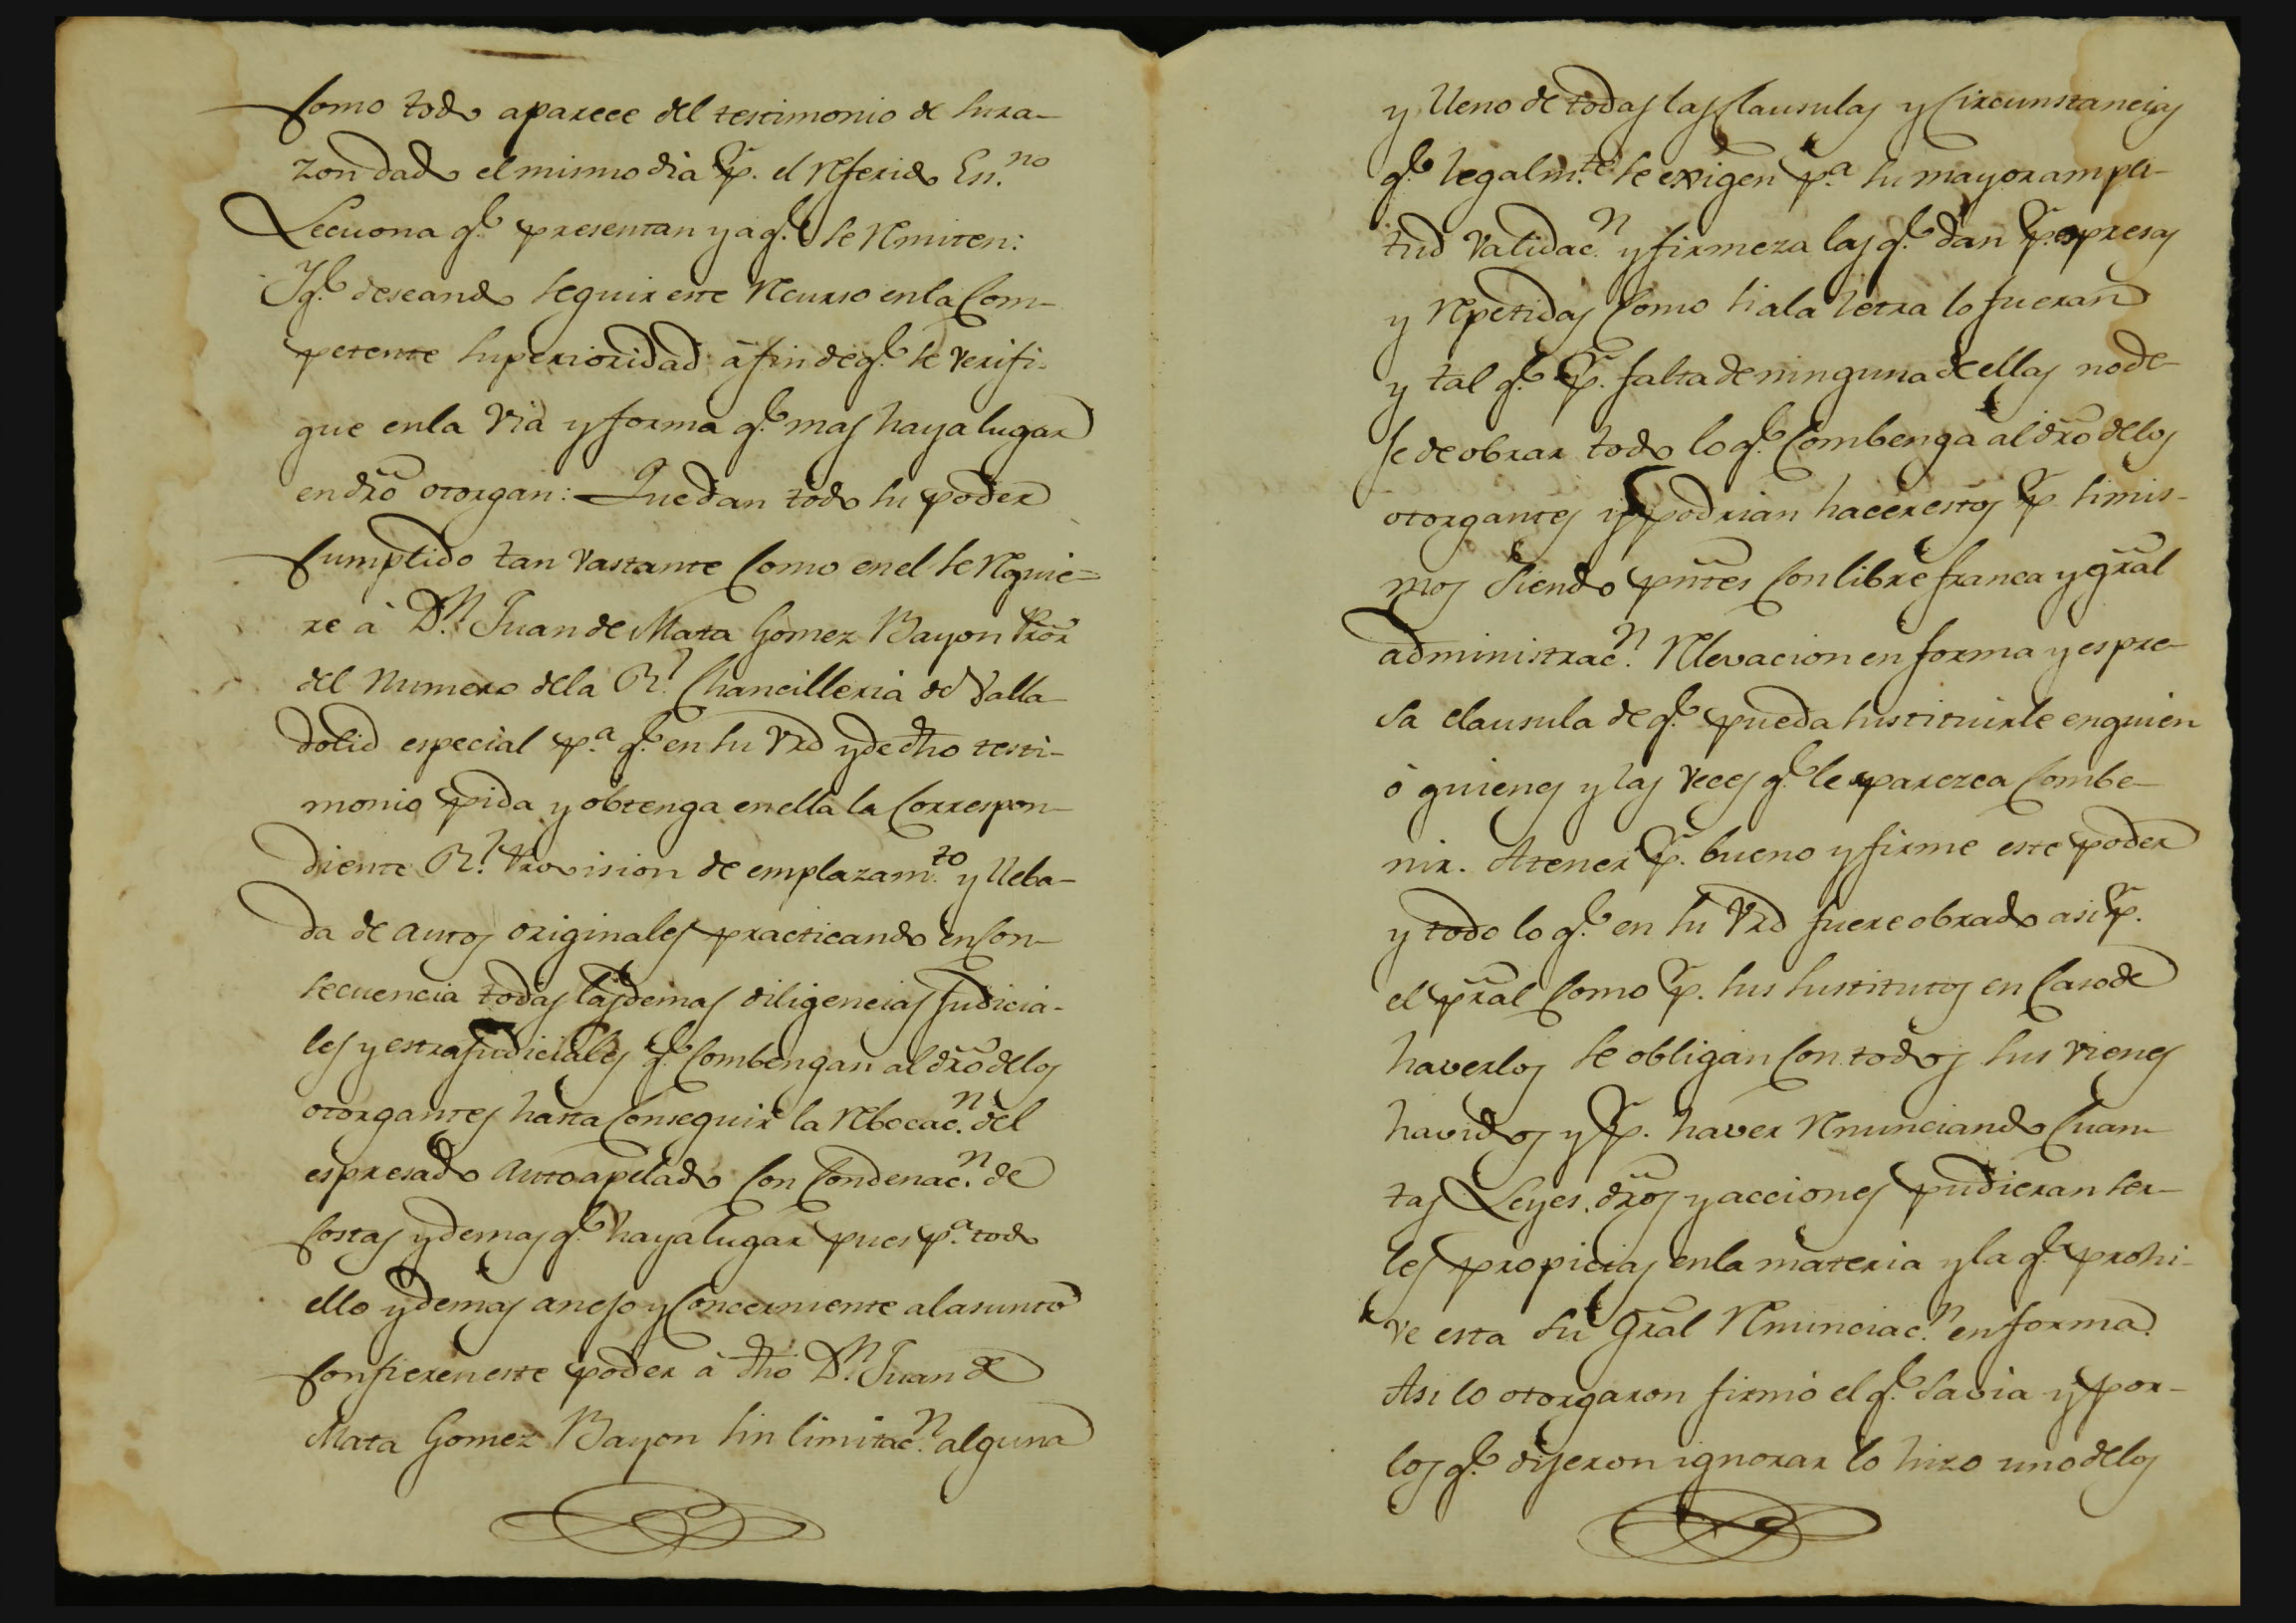 Como todo aparece del testimonio de su ra-
zon dado el mismo dia p. el referido Esn.no
Lecuona q.e presentan y a q.e se remiten:
Y q.e deseando seguir este recurso en la Com-
petente superioridad à fin de q.e se verifi-
que en la via y forma q.e mas haya lugar
en dro otorgan: Que dan todo su poder
Cumplido tan vastante Como en el se requie=
re à D.n Juan de Mata Gomez Bayon Pror
del Numero de la R.l Chancilleria de Valla-
dolid especial p.a q.e en su Vrd y de dho testi-
monio pida y obtenga en ella la Correspon-
diente R.l Provision de emplazam.to y lleba-
da de autos originales practicando en Con-
secuencia todas las demas diligencias Judicia-
les y estrajudiciales q.e Combengan al dro de los
otorgantes hasta Conseguir la rebocac.n del
espresado auto apelado Con Condenac.n de
Costas y demas q.e haya lugar pues p.a todo
ello y demas anejo y Concerniente al asunto
Confieren este poder à dho D.n Juan de
Mata Gomez Bayon sin limitac.n alguna
y lleno de todas las Clausulas y Circunstancias
q.e legalm.te se exigen p.a su mayor ampli-
tud validac.n y firmeza las q.e dan p. espresas
y repetidas Como si a la letra lo fueran
y tal q.e p. falta de ninguna de ellas no de-
je de obrar todo lo q.e Combenga al dro de los
otorgantes y podrian hacer estos p. si mis-
mos siendo pntes Con libre franca y gral
administrac.n relevacion en forma y espre-
sa clausula de q.e pueda sustituirle en quien
ò quienes y las veces q.e le parezca Combe-
nir. A tener p. bueno y firme este poder
y todo lo q.e en su Vrd fuere obrado asi p.
el pral Como p. sus sustitutos en Caso de
haverlos se obligan Con todos sus vienes
havidos y p. haver renunciando Cuan-
tas Leyes, dros y acciones pudieran ser-
les propicias en la materia y la q.e prohi-
ve esta su Gral renunciac.n en forma.
Asi lo otorgaron firmò el q.e savia y por
los q.e dijeron ignorar lo hizo uno de los